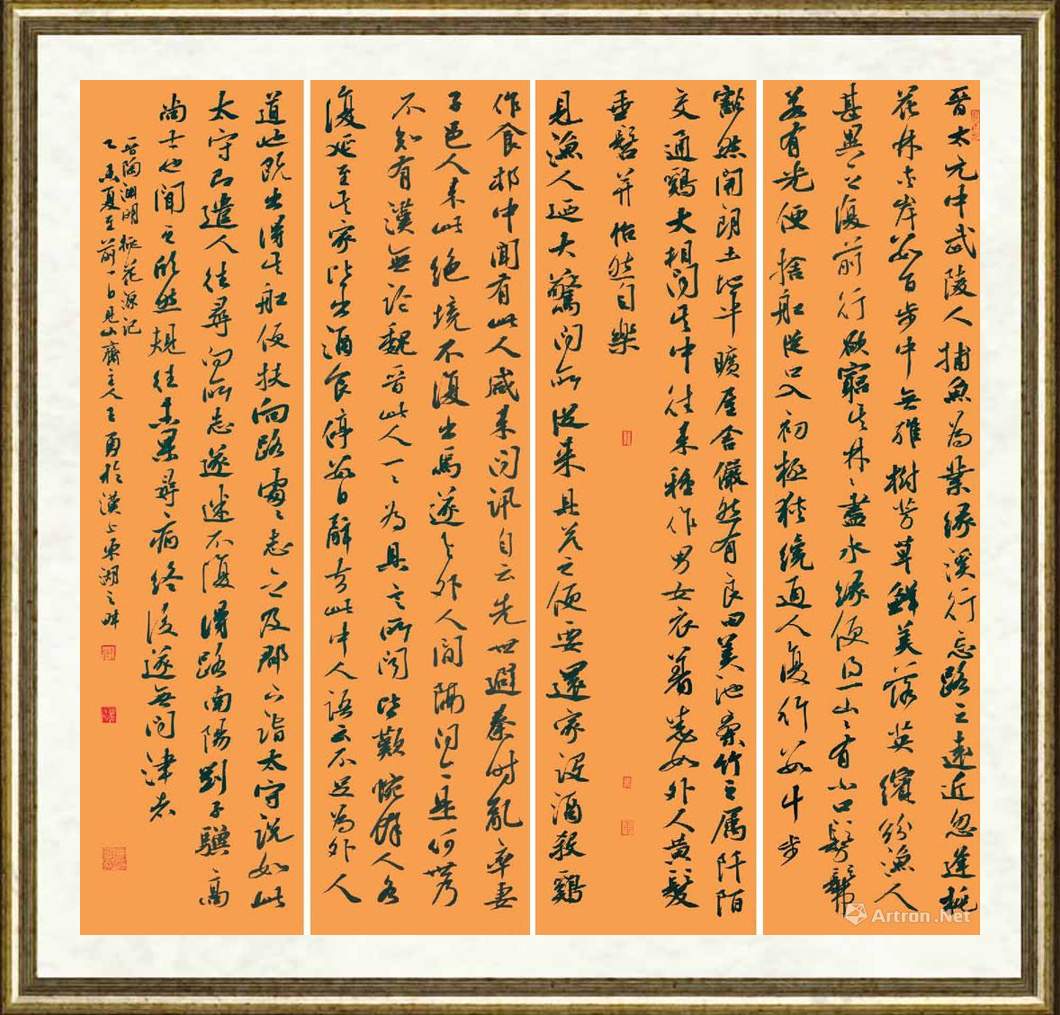 晉太元中武陵人捕魚為業緣溪行忘路之遠近忽逢桃
花林夾岸數百步中無雜樹芳草鮮美落英繽紛漁人
甚異之復前行欲窮其林〻盡水源便得一山〻有小口髣髴
若有光便捨船從口入初極狹纔通人復行數十步
豁然開朗土地平曠屋舍儼然有良田美池桑竹之屬阡陌
交通鷄犬相聞其中往來種作男女衣著悉如外人黃髮
垂髫并怡然自樂
見漁人乃大驚問所從來具答之便要還家設酒殺鷄
作食村中聞有此人咸來問訊自云先世避秦時亂率妻
子邑人來此絕境不復出焉遂與外人間隔問今是何世乃
不知有漢無論魏晉此人一〻為具言所聞皆歎惋餘人各
復延至其家皆出酒食停數日辭去此中人語云不足為外人
道也既出得其船便扶向路處〻志之及郡下詣太守說如此
太守即遣人往尋向所志遂迷不復得路南陽劉子驥高
尚士也聞之欣然規往未果尋〻病終後遂無問津者
晉陶淵明桃花源記
乙未夏至前一日見山齋主人王勇於漢上東湖之畔
Artron.Net